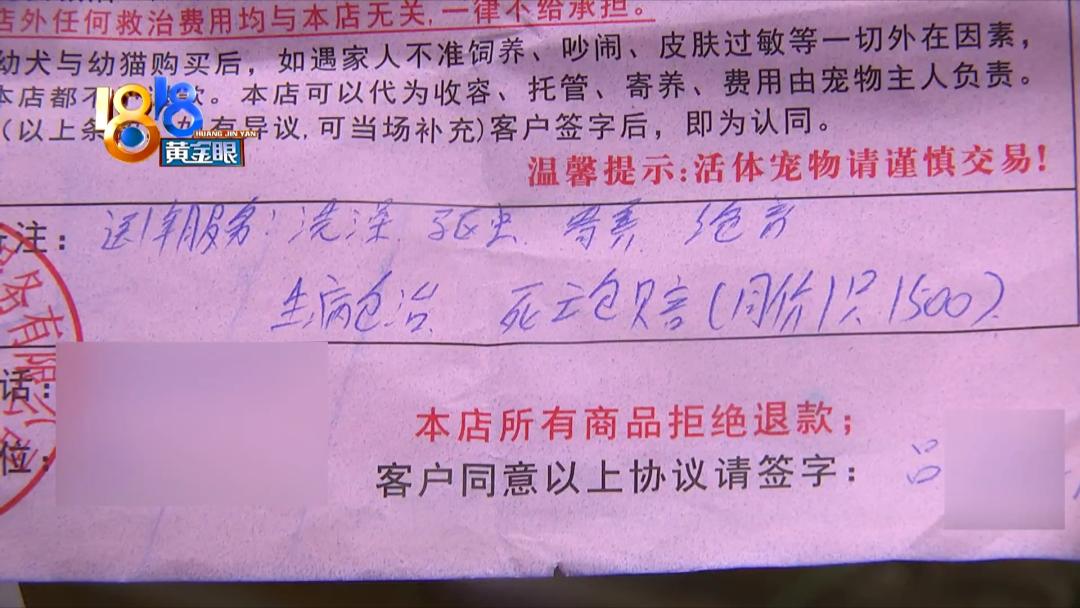 店外任何救治费用均与本店无关,一律不给承担。
幼犬与幼猫购买后，如遇家人不准饲养、吵闹、皮肤过敏等一切外在因素，
本店都不 款。本店可以代为收容、托管、寄养、费用由宠物主人负责。
(以上条 有异议,可当场补充)客户签字后，即为认同。
1818
HUANG JIN YAN
黄金眼
温馨提示:活体宠物请谨慎交易!
备注: 送1年服务: 洗澡 驱虫 寄养 绝育
生病包治 死亡包赔(同价1只1500)
务有限公
话:
本店所有商品拒绝退款；
位: 客户同意以上协议请签字: 吕